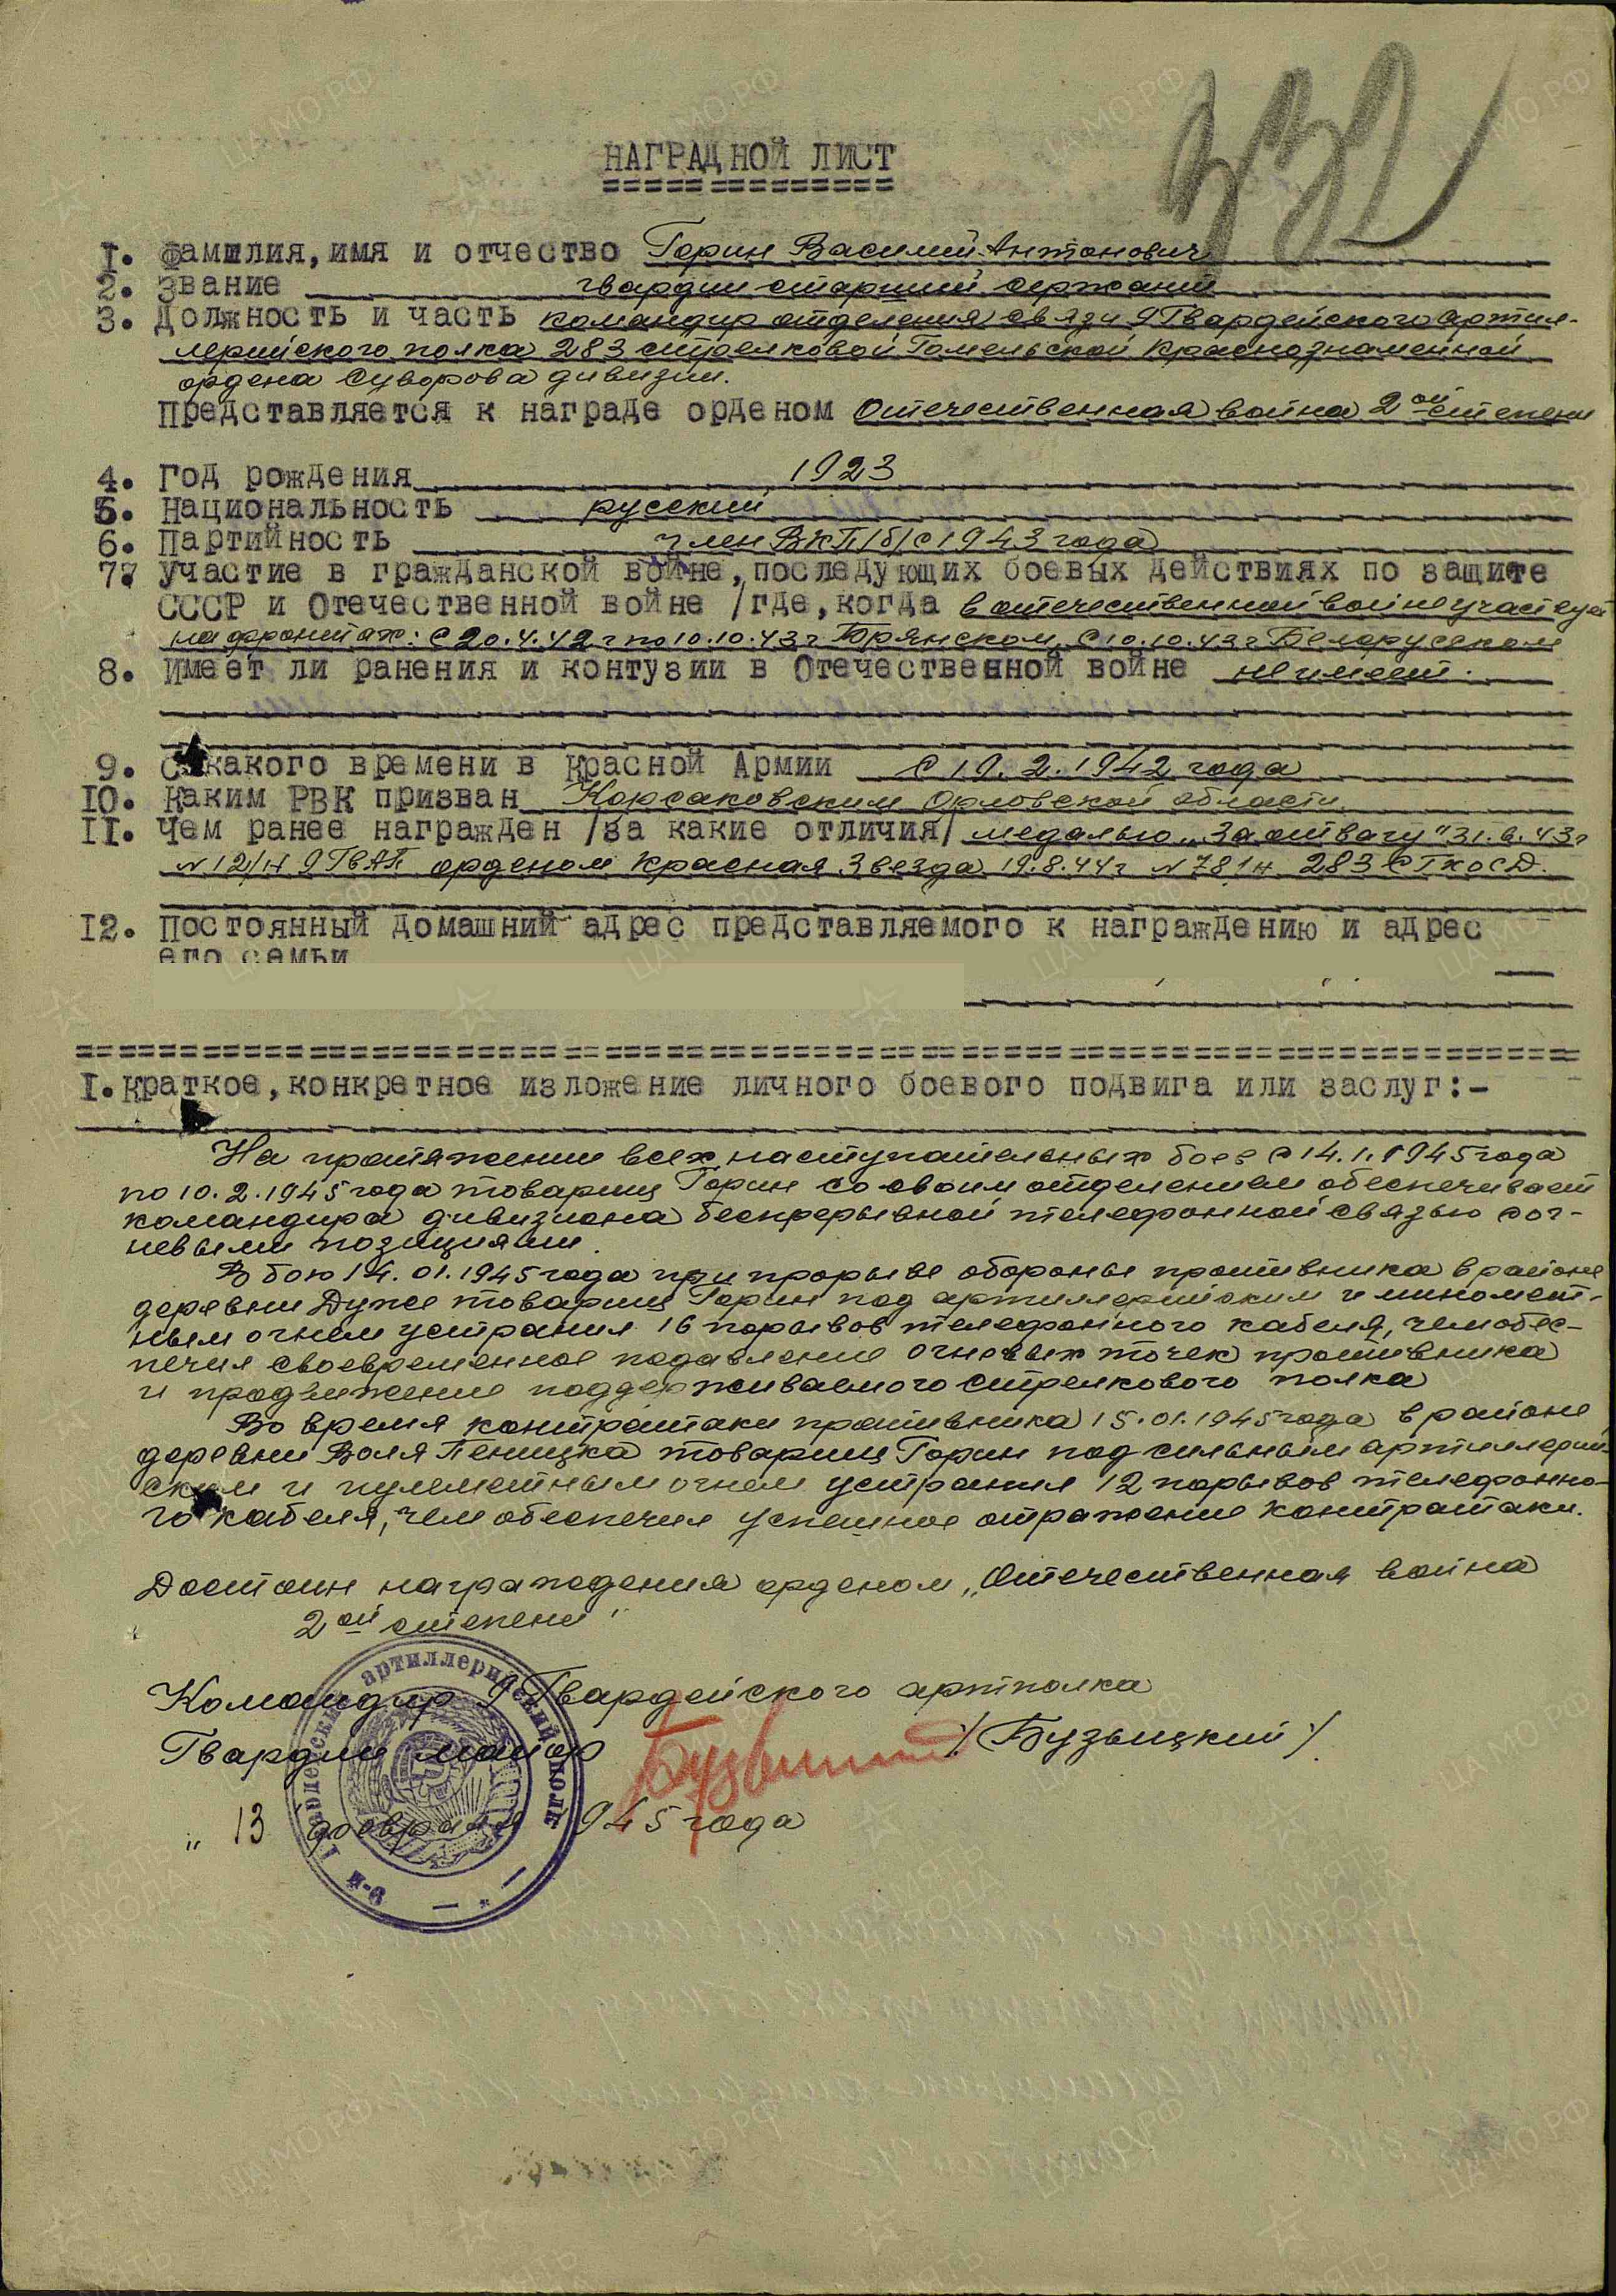 332
НАГРАДНОЙ ЛИСТ
1. Фамилия, имя и отчество Горин Василий Антонович
2. Звание гвардии старший сержант
3. Должность и часть командир отделения связи 9 Гвардейского артил-
лерийского полка 283 стрелковой Гомельской Краснознаменной
ордена Суворова дивизии.
Представляется к награде орденом Отечественная война 2ой степени
4. Год рождения 1923
5. Национальность русский
6. Партийность член ВКП/б/ с 1943 года
7. Участие в гражданской войне, последующих боевых действиях по защите
СССР и Отечественной войне /где, когда в отечественной войне участвует
на фронтах: с 20.4.42 г по 10.10.43 г Брянском, с 10.10.43 г Белорусском
8. Имеет ли ранения и контузии в Отечественной войне не имеет.
9. С какого времени в Красной Армии с 19.2.1942 года
10. Каким РВК призван Корсаковским Орловской области
11. Чем ранее награжден /за какие отличия/ медалью „За отвагу" 31.6.43 г
N 12/н 9 ГвАП орденом Красная Звезда 19.8.44 г N 78/н 283 СГКОСД.
12. Постоянный домашний адрес представляемого к награждению и адрес
его семьи
I. Краткое, конкретное изложение личного боевого подвига или заслуг:-
На протяжении всех наступательных боев с 14.1.1945 года
по 10.2.1945 года товарищ Горин со своим отделением обеспечивает
командира дивизиона бесперерывной телефонной связью с ог-
невыми позициями.
В бою 14.01.1945 года при прорыве обороны противника в районе
деревни Дуже товарищ Горин под артиллерийским и миномет-
ным огнем устранил 16 порывов телефонного кабеля, чем обес-
печил своевременное подавление огневых точек противника
и продвижение поддерживаемого стрелкового полка
Во время контратаки противника 15.01.1945 года в районе
деревни Воля Пеницка товарищ Горин под сильным артиллерий-
ским и пулеметным огнем устранил 12 порывов телефонно-
го кабеля, чем обеспечил успешное отражение контратаки.
Достоин награждения орденом „Отечественная война
2ой степени"
Командир 9 Гвардейского артполка
Гвардии майор Бузыцкий /Бузыцкий/
„13 февраля 1945 года
9-й Гвардейский артиллерийский полк